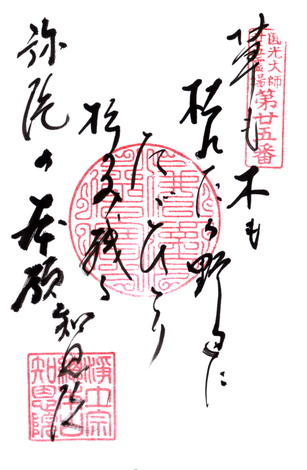 圓光大師
第廿五番
草も木も
枯れたる野辺に
たゞひとり
松のみ残る
弥陀の本願
知恩院
浄土宗
知恩院